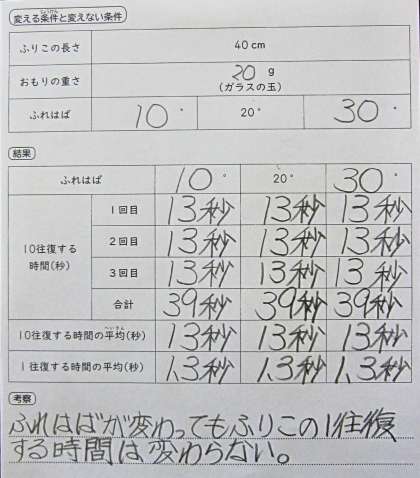 変える条件と変えない条件
ふりこの長さ 40cm
おもりの重さ 20 g
(ガラスの玉)
ふれはば 10° 20° 30°
結果
ふれはば 10° 20° 30°
10往復する時間(秒) 1回目 13秒 13秒 13秒
2回目 13秒 13秒 13秒
3回目 13秒 13秒 13秒
合計 39秒 39秒 39秒
10往復する時間の平均(秒) 13秒 13秒 13秒
1往復する時間の平均(秒) 1.3秒 1.3秒 1.3秒
考察
ふれはばが変わってもふりこの1往復
する時間は変わらない。